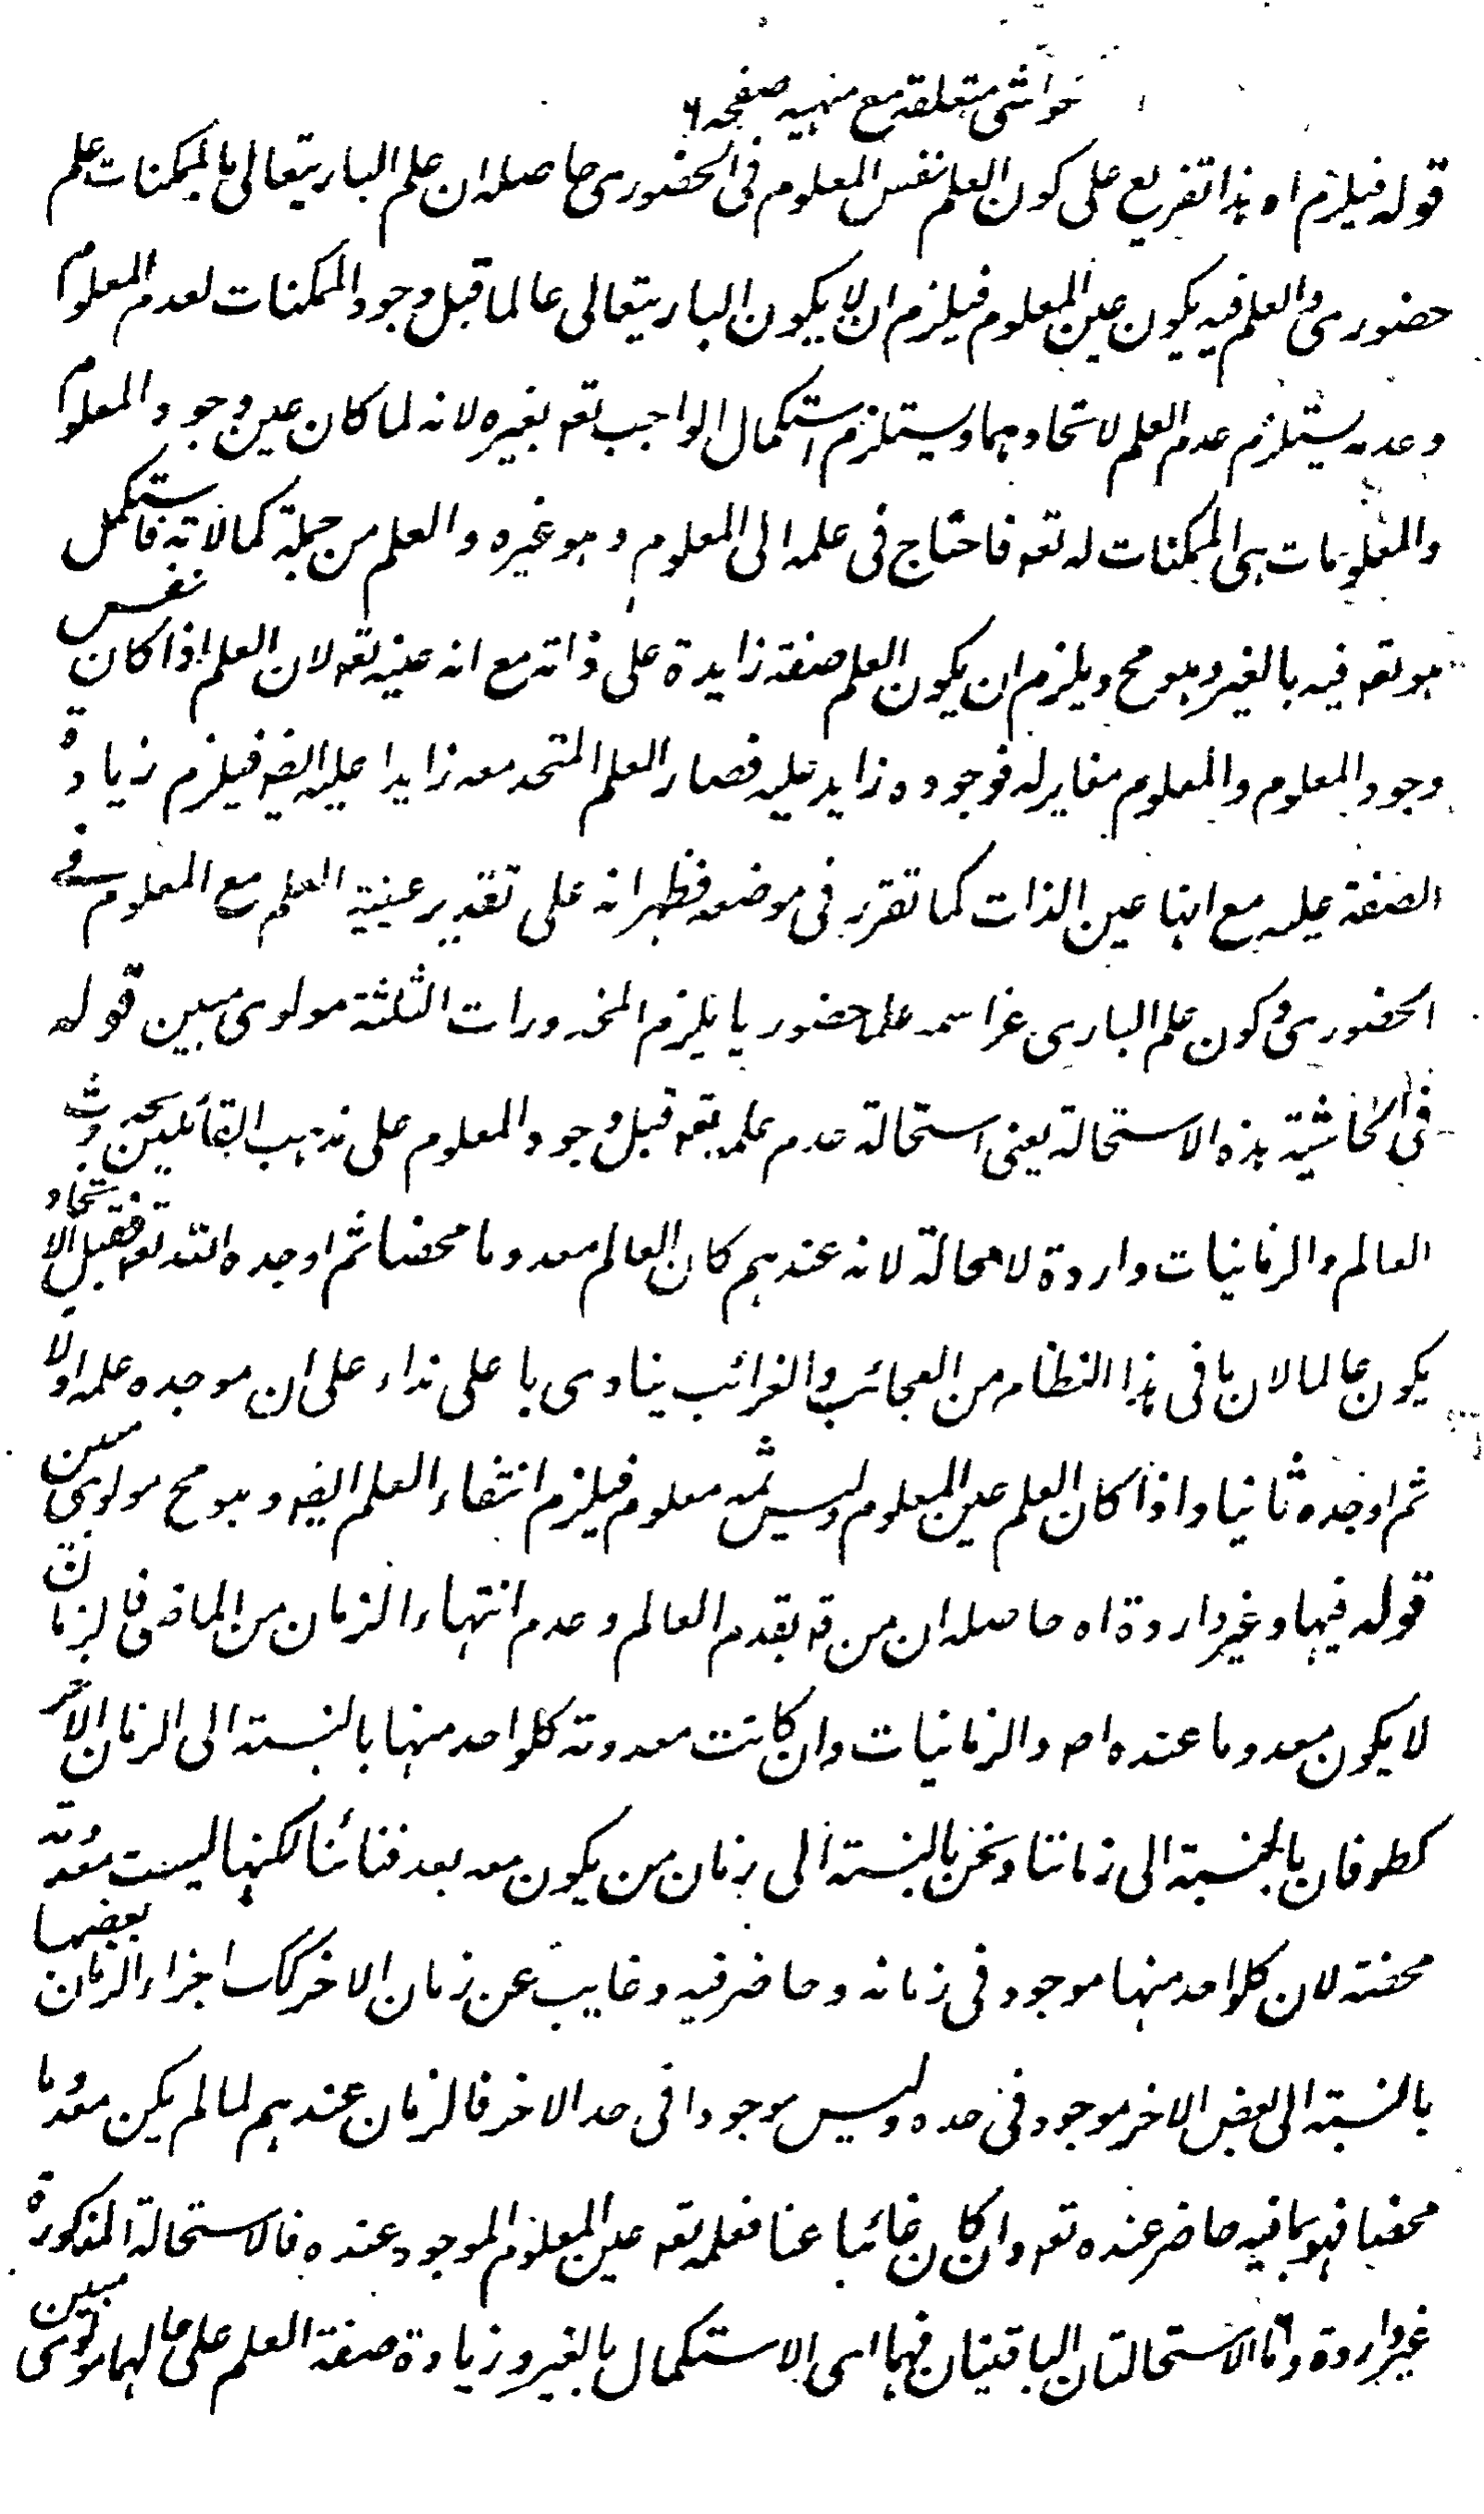 حواشی متعلقه مع منهیه صفحه ۶
قوله فیلزم اه هذا تفریع علی کون العلم نفس المعلوم فی الحضوری حاصله ان علم الباریتعالی بالممکنات علم
حضوری والعلم فیه یکون عین المعلوم فیلزم ان لا یکون الباریتعالی عالما قبل وجود الممکنات لعدم المعلوم
وعدمه یستلزم عدم العلم لاتحادهما ویستلزم استکمال الواجب تعه بغیره لانه لما کان عین وجود المعلوم
والمعلومات هی الممکنات له تعه فاحتاج فی علمه الی المعلوم وهو غیره والعلم من جملة کمالاته فاستکمل
هو تعه فیه بالغیر وهو مح ویلزم ان یکون العلم صفة زایدة علی ذاته مع انه عینه تعه لان العلم اذا کان نفس
وجود المعلوم والمعلوم مغایر له فوجوده زاید علیه فصار العلم المتحد معه زایدا علیه ایضه فیلزم زیادة
الصفة علیه مع انها عین الذات کما تقرر فی موضعه فظهر انه علی تقدیر عینیة العلم مع المعلوم فے
الحضوری وکون علم الباری عز اسمه علما حضوریا یلزم المخدورات الثلثة مولوی مبین قوله
فی الحاشیة هذه الاستحالة یعنی استحالة عدم علمه تعه قبل وجود المعلوم علی مذهب القائلین بحدوث
العالم والزمانیات واردة لا محالة لانه عندهم کان العالم معدوما محضا ثم اوجده الله تعه فقبل الایجاد
یکون عالما لان ما فی هذا النظام من العجائب والغرائب ینادی باعلی نداء علی ان موجده علمه اولا
ثم اوجده ثانیا واذا کان العلم عین المعلوم ولیس ثمه معلوم فیلزم انتفاء العلم ایضه وهو مح مولوی مبین
قوله فیها وغیر واردة اه حاصله ان من قه بقدم العالم وعدم انتهاء الزمان من الماضی فالزمان
لا یکون معدوما عنده اص والزمانیات وان کانت معدومة کلواحد منها بالنسبة الی الزمان الآخر
کطوفان بالنسبة الی زماننا ونحن بالنسبة الی زمان من یکون معه بعد فنائنا لکنها لیست معدومة
محضة لان کلواحد منها موجود فی زمانه وحاضر فیه وغایب عن زمان الاخر کک اجزاء الزمان بعضها
بالنسبة الی بعض الاخر موجود فی حده ولیس موجودا فی حد الاخر فالزمان عندهم لما لم یکن معدوما
محضا فهو بما فیه حاضر عنده تعه وان کان غائبا عنا فعلمه تعه عین المعلوم الموجود عنده فالاستحالة المذکورة
غیر واردة واما الاستحالتان الباقیتان فهما ای الاستکمال بالغیر وزیادة صفة العلم علی حالهما مولوی مبین